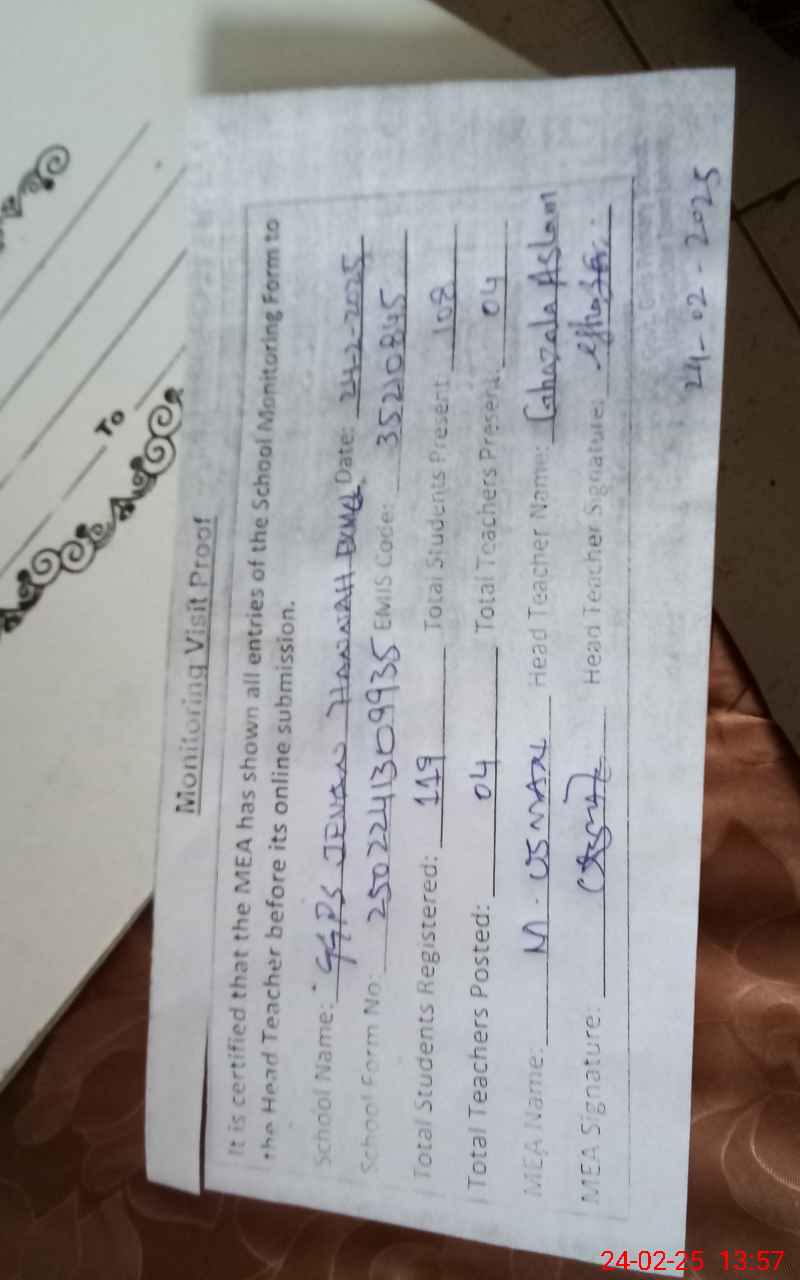 To
Monitoring Visit Proof
It is certified that the MEA has shown all entries of the School Monitoring Form to
the Head Teacher before its online submission.
School Name: GGPS JEVAN HANNAH Date: 24-2-2025
School Form No: 2502241309935 EMIS Code: 35210845
Total Students Registered: 119 Total Students Present: 108
Total Teachers Posted: 04 Total Teachers Present: 04
MEA Name: M. USMAN Head Teacher Name: Ghazala Aslam
MEA Signature: Head Teacher Signature:
24-02-2025
24-02-25 13:57